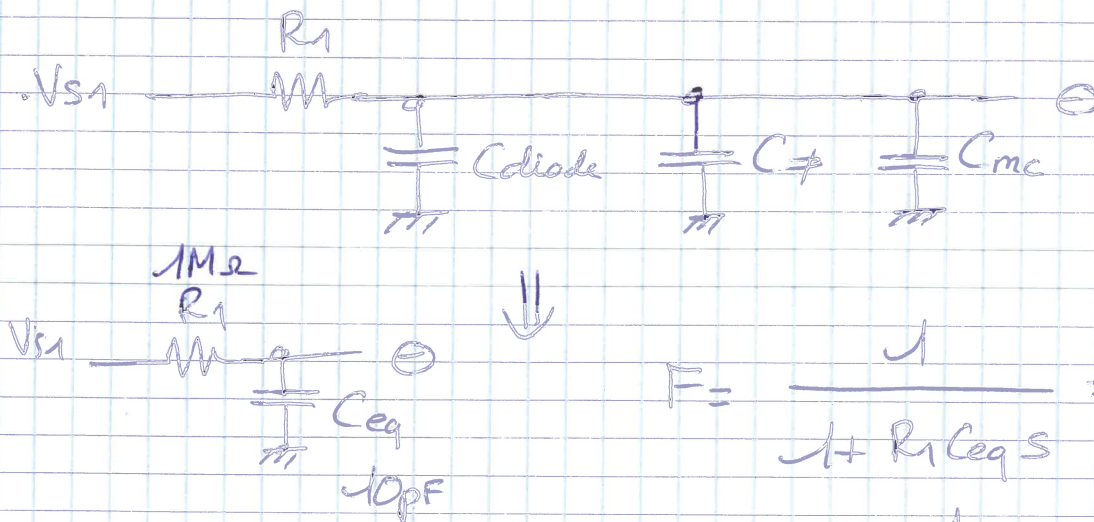 R1
Vs1
Cdiode C≠ Cmc
1MΩ
R1
Vs1 ⊖
Ceq
10pF
F= 1
1+ R1 Ceq S